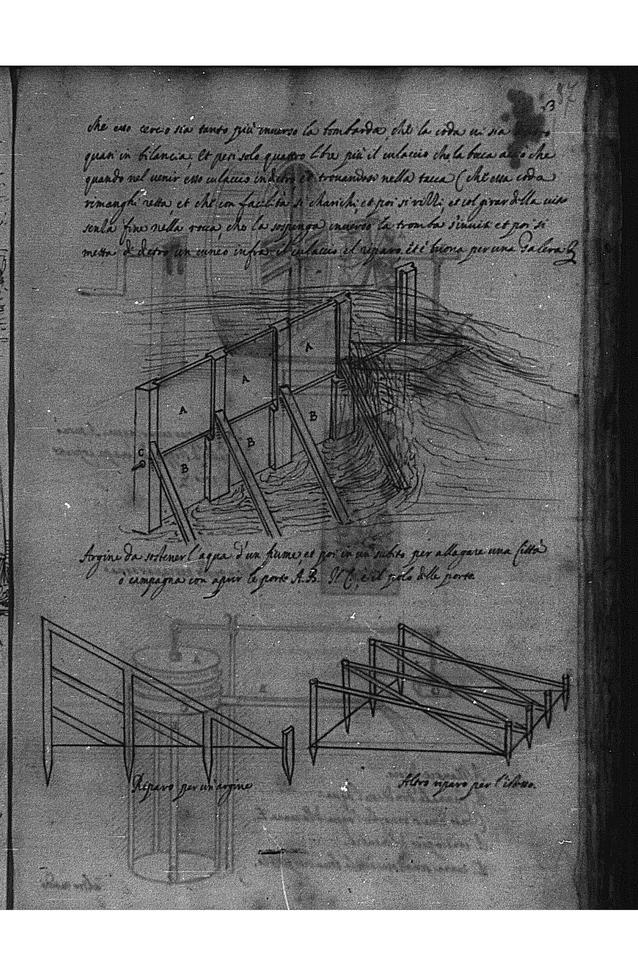 87
3
che esso cercio sia tanto più inverso la bombarda che la coda vi sia
quasi in bilancia, Et pesi solo quattro libre più il culaccio che la boca acciò che
quando nel venir esso culaccio indietro et trovandosi nella tacca ( che essa coda
rimanghi retta et che con facilità si charichi, et poi si rilli, et col girar della vite
senza fine nella roca, che la sospinga inverso la tromba s'inviti et poi si
metta di dietro un cuneo infra il culaccio el riparo, et è buona per una Galera
A
A
A
B
B
B
C
Argine da sostener l'aqua d'un fiume, et poi in un subito per allagare una Città
o campagna con aprir le porte A.B. Il C, è il polo delle porte
Riparo per un'argine
Altro riparo per l'istesso.